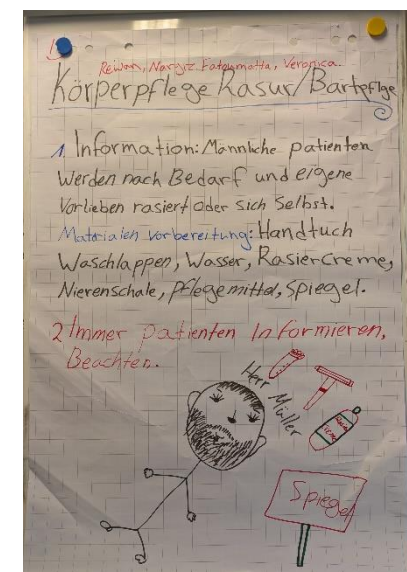 Rewan, Nargiz, Fatoumatta, Veronica.
Körperpflege Rasur/Bartpflge
1. Information: Männliche patienten
Werden nach Bedarf und eigene
Vorlieben rasiert oder sich selbst.
Materialen vorbereitung: Handtuch
Waschlappen, Wasser, Rasiercreme,
Nierenschale, pflegemittel, Spiegel.
2 Immer patienten Informieren,
Beachten.
Herr Müller
Spiegel